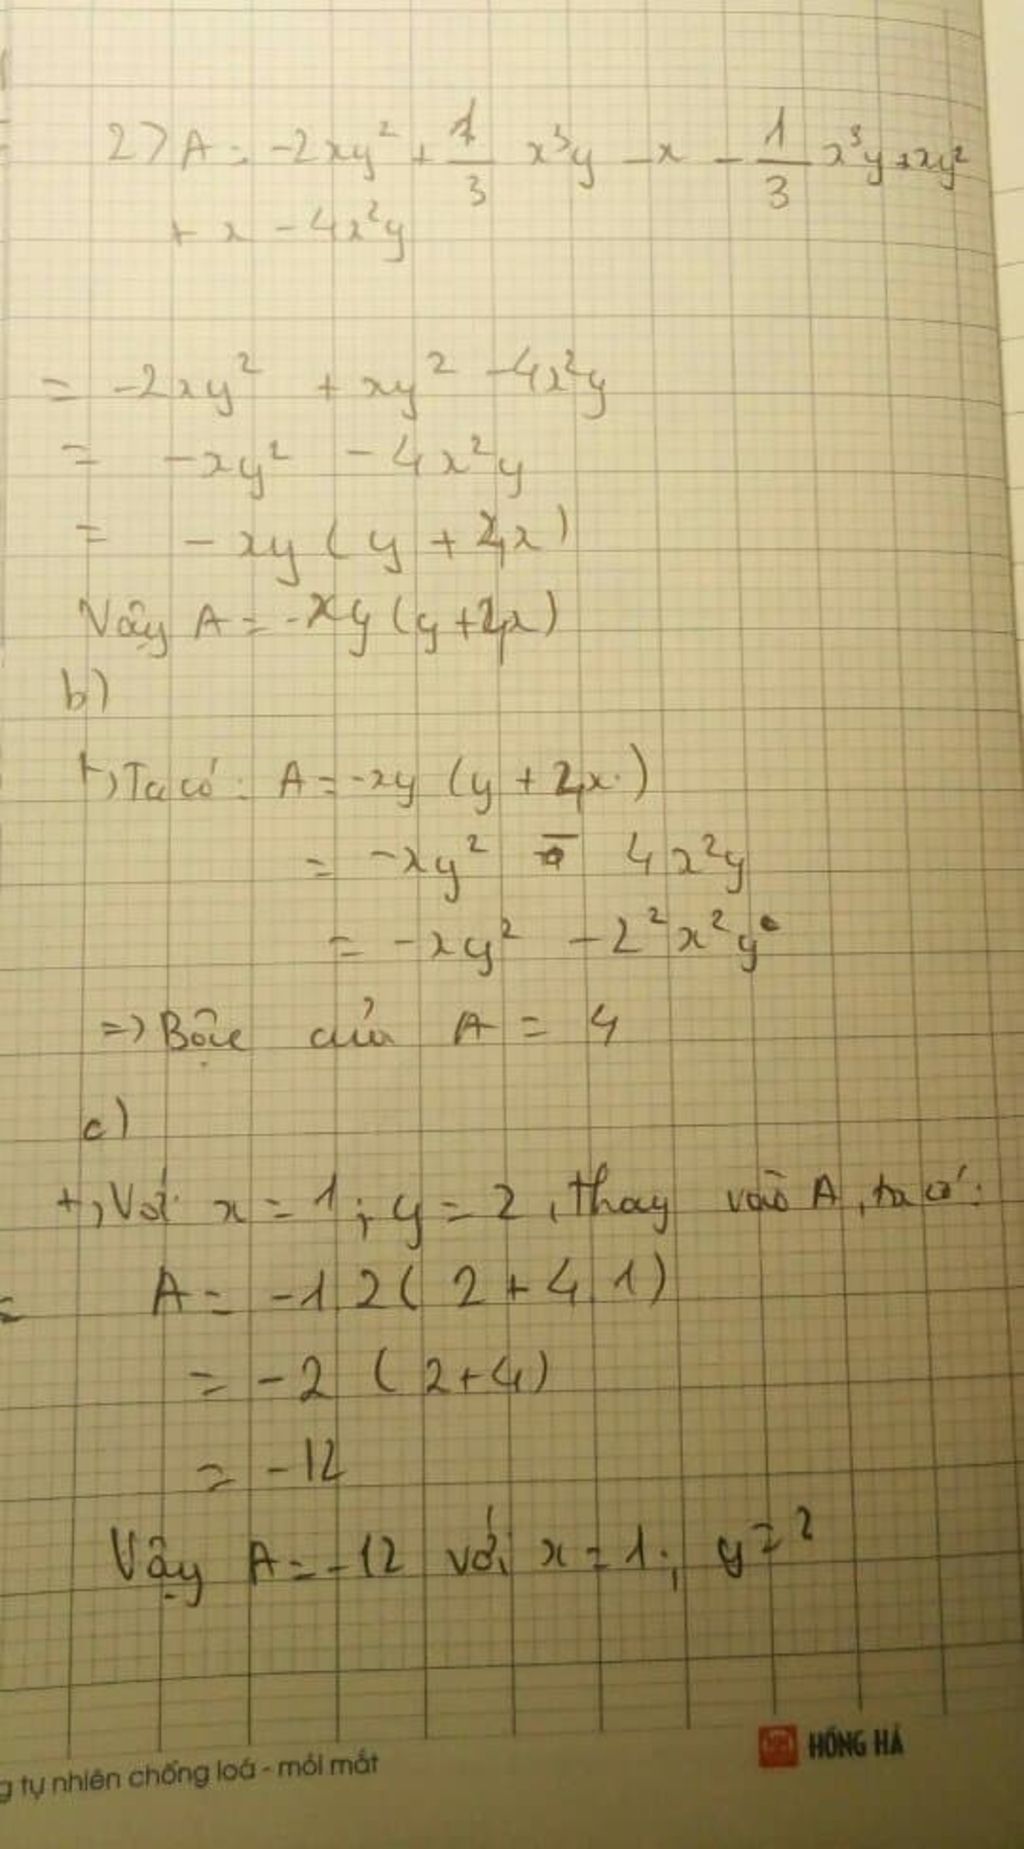 2> A = -2xy² + 1/3 x³y - x - 1/3 x³y + xy²
+ x - 4x²y
= -2xy² + xy² - 4x²y
= -xy² - 4x²y
= -xy (y + 4x)
Vậy A = -xy (y + 4x)
b)
+, Ta có: A = -xy (y + 4x)
= -xy² - 4x²y
= -xy² - 2²x²y
=> Bậc của A = 4
c)
+, Với x = 1; y = 2, thay vào A, ta có:
= A = -1.2( 2 + 4.1)
= -2 ( 2+4)
= -12
Vậy A = -12 với x = 1; y = 2
g tự nhiên chống loá - mỏi mắt
HH HỒNG HÀ